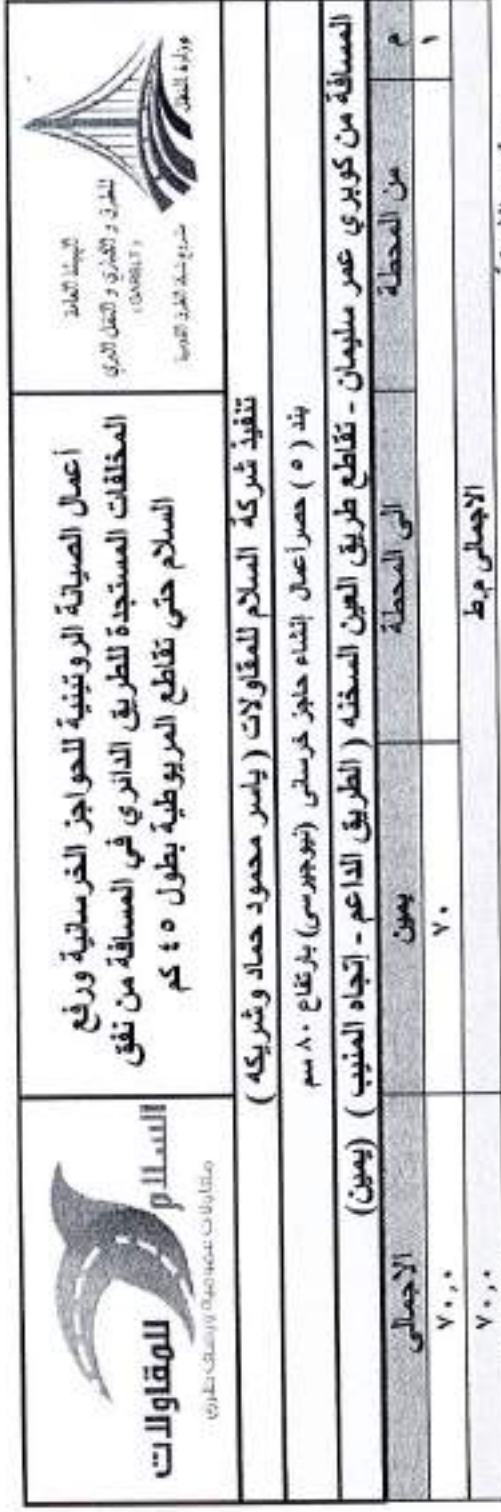 وزارة النقل
الهيئة العامة
للطرق و الكباري و النقل البري
(GARBLT)
أعمال الصيانة الروتينية للحواجز الخرسانية ورفع
المخلفات المستجدة للطريق الدائري في المسافة من نفق
السلام حتي تقاطع المريوطية بطول ٤٥ كم
السلام
للمقاولات
مقاولات عمومية ورصف طرق
تنفيذ شركة السلام للمقاولات ( ياسر محمود حماد وشريكه )
بند ( ٥ ) حصر أعمال إنشاء حاجز خرسانى (نيوجيرسى) بارتفاع ٨٠ سم
المسافة من كوبري عمر سليمان - تقاطع طريق العين السخنه ( الطريق الداعم - إتجاه المنيب ) (يمين))
م من المحطة الى المحطة يمين الاجمالى
١ ٧٠ ٧٠,٠
الاجمالى م.ط ٧٠,٠